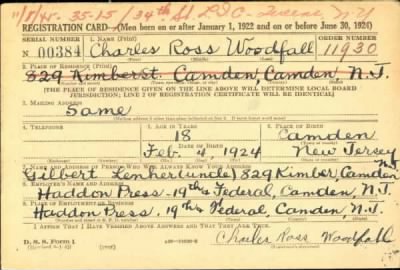 11/8/45- 35-15 134th St. Queens N.Y
REGISTRATION CARD—(Men born on or after January 1, 1922 and on or before June 30, 1924)
SERIAL NUMBER
1. NAME (Print)
ORDER NUMBER
N 00384 Charles Ross Woodfall 11930
2. PLACE OF RESIDENCE (Print)
829 Kimber St. Camden, Camden, N.J.
[THE PLACE OF RESIDENCE GIVEN ON THE LINE ABOVE WILL DETERMINE LOCAL BOARD
JURISDICTION; LINE 2 OF REGISTRATION CERTIFICATE WILL BE IDENTICAL]
3. MAILING ADDRESS
Same
4. TELEPHONE
5. AGE IN YEARS
6. PLACE OF BIRTH
18
Camden
DATE OF BIRTH
Feb. 4, 1924
New Jersey
7. NAME AND ADDRESS OF PERSON WHO WILL ALWAYS KNOW YOUR ADDRESS
Gilbert (uncle) 829 Kimber, Camden N.J.
8. EMPLOYER'S NAME AND ADDRESS
Haddon Press- 19th & Federal, Camden, N.J.
9. PLACE OF EMPLOYMENT OR BUSINESS
Haddon Press. 19th & Federal, Camden, N.J.
I AFFIRM THAT I HAVE VERIFIED ABOVE ANSWERS AND THAT THEY ARE TRUE.
D. S. S. Form 1
Charles Ross Woodfall